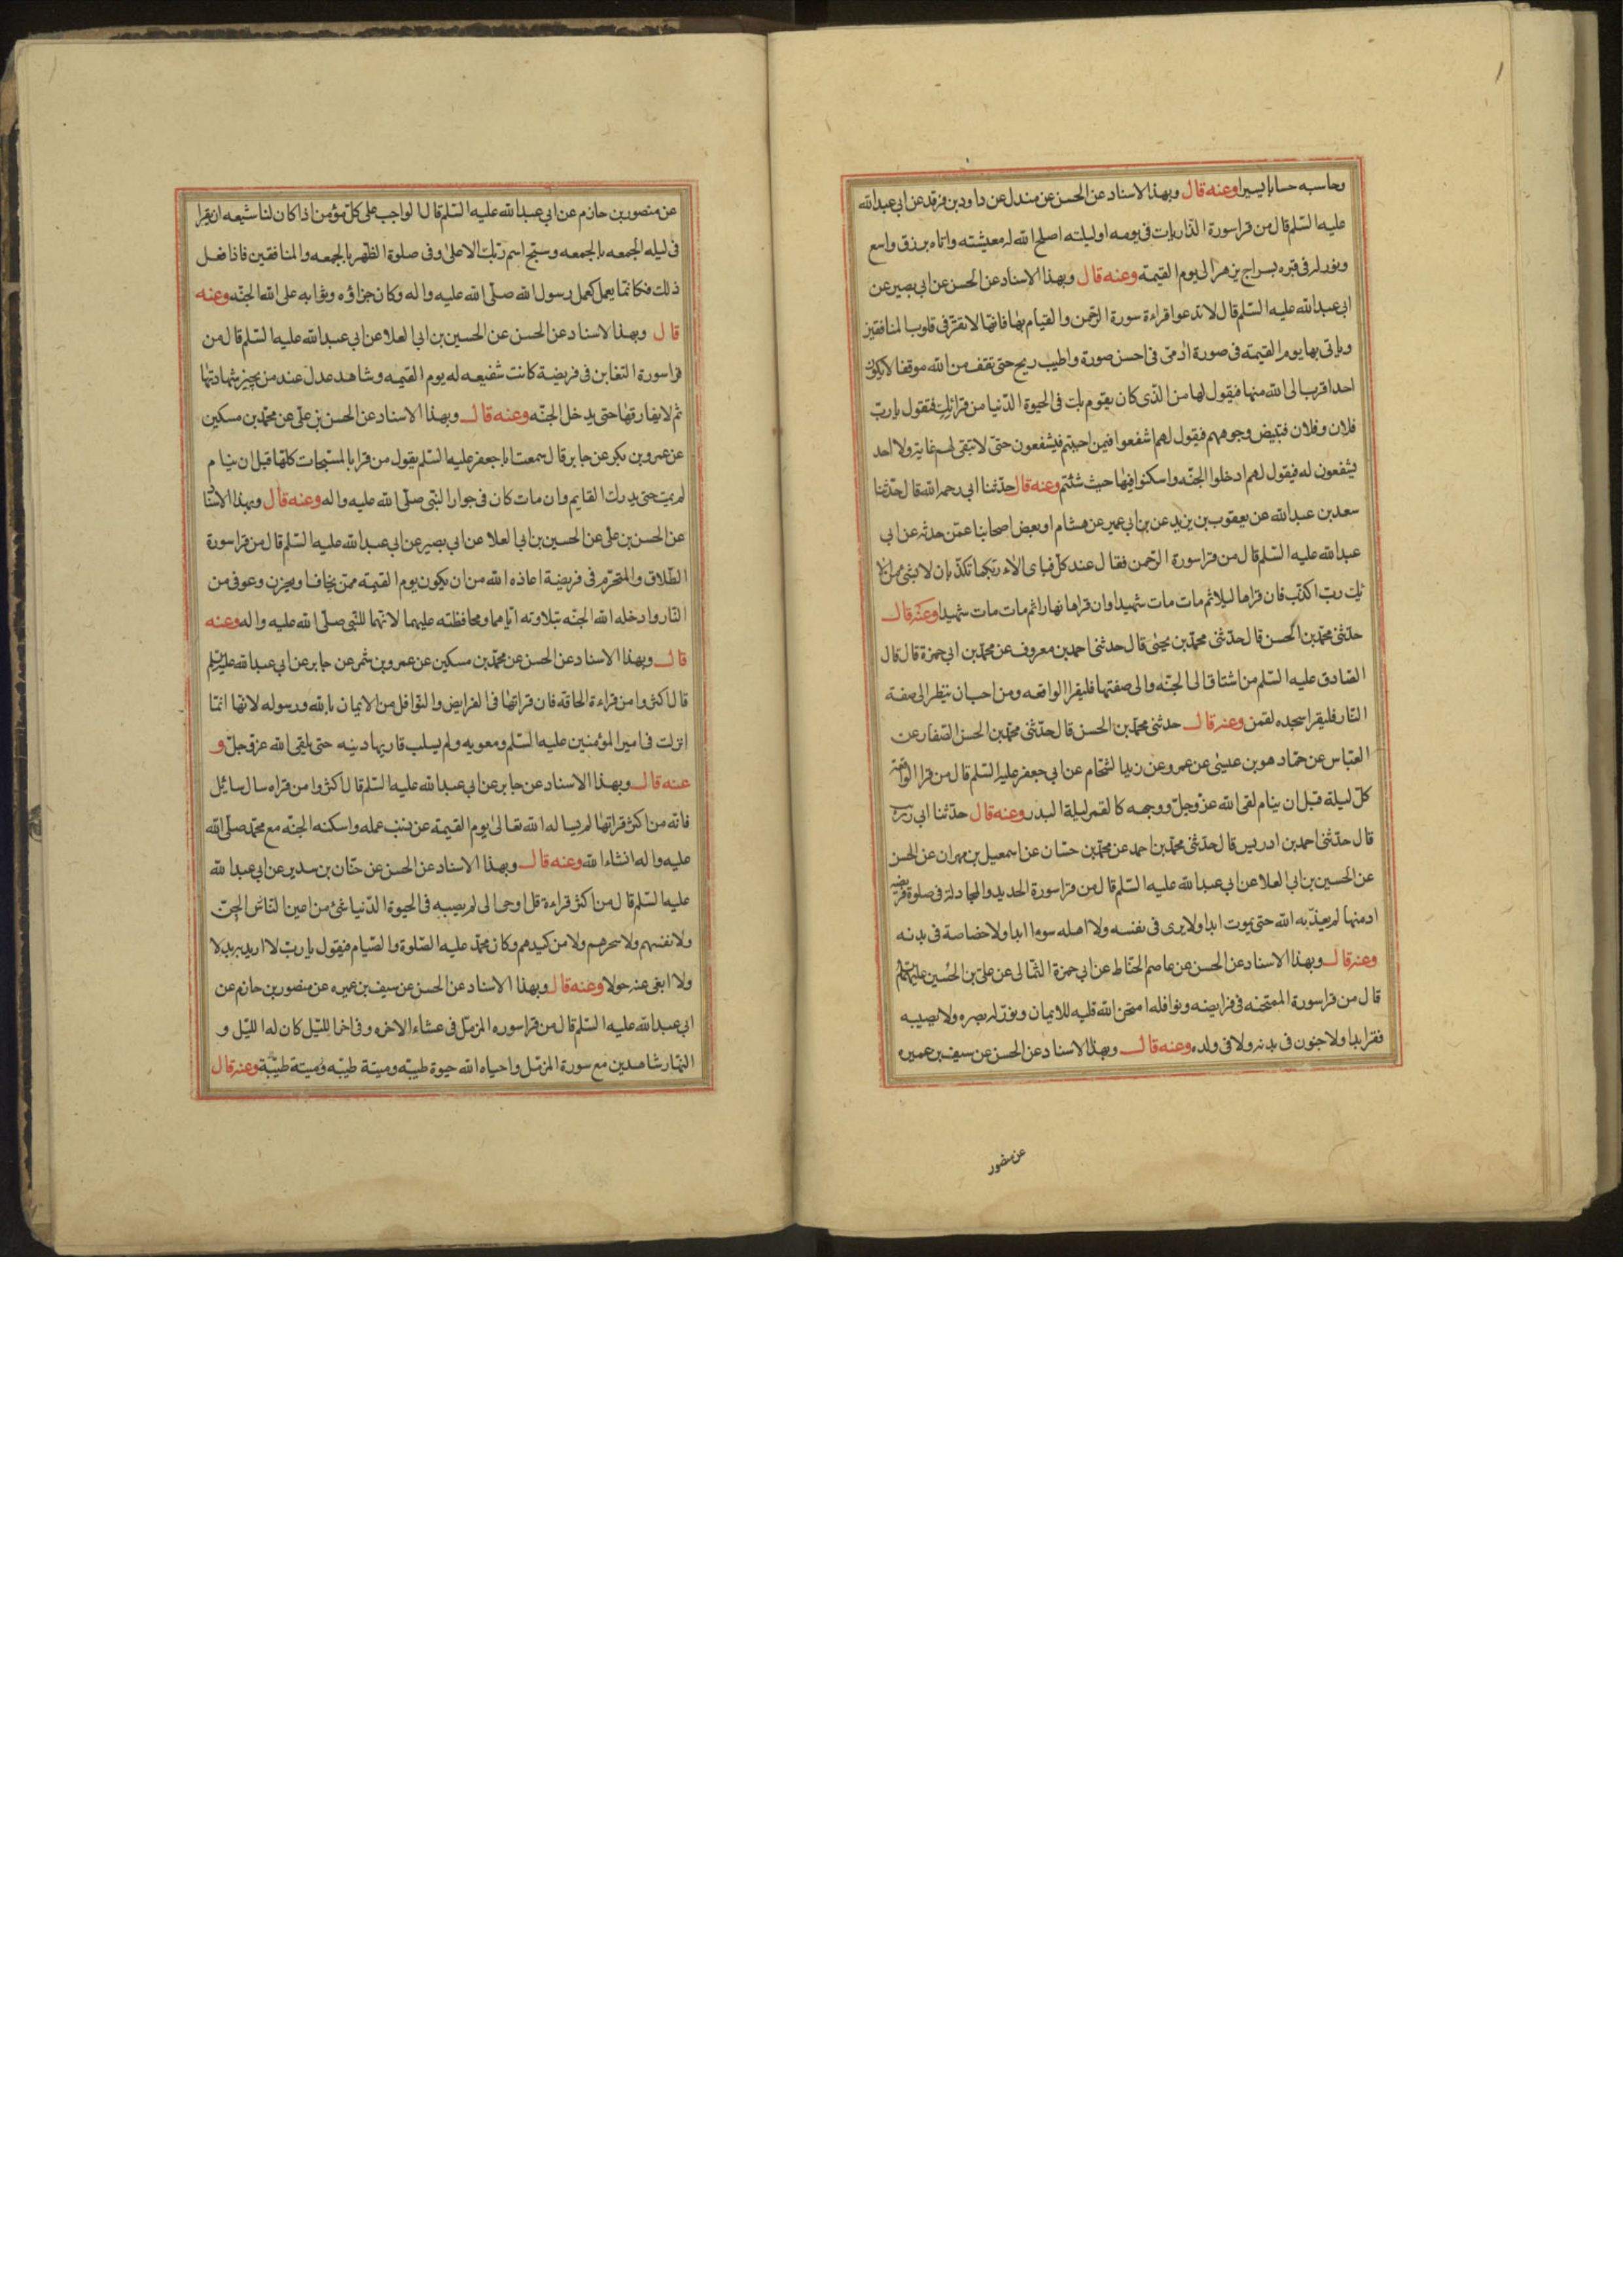 وحاسبه حسابا يسيرا وعنه قال وبهذا الاسناد عن الحسن عن مندل عن داود بن فرقد عن ابي عبد الله
عليه السّلم قال من قرا سورة الذّاريات في يومه او ليلته اصلح الله له معيشته واتاه برزق واسع
ونور له في قبره بسراج يزهر الى يوم القيمة وعنه قال وبهذا الاسناد عن الحسن عن ابي بصير عن
ابي عبد الله عليه السّلم قال لا تدعوا قراءة سورة الرّحمن والقيام بها فانّها لا تقرّ في قلوب المنافقين
وياتي بها يوم القيمة في صورة ادمى في احسن صورة واطيب ريح حتى تقف من الله موقفا لا يكون
احد اقرب الى الله منها فيقول لها من الذى كان يقوم بك في الحيوة الدّنيا من قرائك فتقول يا ربّ
فلان وفلان فتبيض وجوههم فيقول لهم اشفعوا فيمن احببتم فيشفعون حتّى لا تبقى لهم غاية ولا احد
يشفعون له فيقول لهم ادخلوا الجنّه واسكنوا فيها حيث شئتم وعنه قال حدّثنا ابي رحمه الله قال حدّثنا
سعد بن عبد الله عن يعقوب بن يزيد عن بن ابي عمير عن هشام او بعض اصحابنا عمّن حدثه عن ابي
عبد الله عليه السّلم قال من قرا سورة الرّحمن فقال عند كلّ فباى الاء ربّكما تكذّبان لا بشئ من الا
ئك ربّ اكذّب فان قراها ليلا ثم مات مات شهيدا وان قراها نهارا ثم مات مات شهيدا وعنه قال
حدّثنى محمّد بن الحسن قال حدّثنى محمّد بن يحيى قال حدثنى احمد بن معروف عن محمّد بن ابي حمزة قال قال
الصّادق عليه السّلم من اشتاق الى الجنّه والى صفتها فليقرا الواقعه ومن احب ان ينظر الى صفة
النّار فليقرا سجده لقمن وعنه قال حدثنى محمّد بن الحسن قال حدّثنى محمّد بن الحسن الصّفار عن
العبّاس عن حمّاد هو بن عيسى عن عمرو عن زيد الشحّام عن ابي جعفر عليه السّلم قال من قرا الواقعة
كلّ ليلة قبل ان ينام لقى الله عزّ وجلّ ووجهه كالقمر ليلة البدر وعنه قال حدّثنا ابي
قال حدّثنى احمد بن ادريس قال حدّثنى محمّد بن احمد عن محمّد بن حسّان عن اسمعيل بن مهران عن الحسن
عن الحسين بن ابي العلا عن ابي عبد الله عليه السّلم قال من قرا سورة الحديد والمجادلة في صلوة فريضه
ادمنها لم يعذّبه الله حتى يموت ابدا ولا يرى في نفسه ولا اهله سوءا ابدا ولا خصاصة في بدنه
وعنه قال وبهذا الاسناد عن الحسن عن عاصم الحنّاط عن ابي حمزة الثمّالى عن علىّ بن الحسين عليهما السّلم
قال من قرا سورة الممتحنه في فرايضه ونوافله امتحن الله قلبه للايمان ونوّر له بصره ولا يصيبه
فقر ابدا ولا جنون في بدنه ولا في ولده وعنه قال وبهذا الاسناد عن الحسن عن سيف بن عميره
عن منصور
عن منصور بن حازم عن ابي عبد الله عليه السّلم قال الواجب على كلّ مؤمن اذا كان لنا شيعه ان يقرا
في ليله الجمعه بالجمعه وسبّح اسم ربّك الاعلى وفى صلوة الظّهر بالجمعه والمنافقين فاذا فعل
ذلك فكانّما يعمل كعمل رسول الله صلّى الله عليه واله وكان جزاؤه وثوابه على الله الجنّه وعنه
قال وبهذا الاسناد عن الحسن عن الحسين بن ابي العلا عن ابي عبد الله عليه السّلم قال من
قرا سورة التغابن في فريضة كانت شفيعه له يوم القيمه وشاهد عدل عند من يجيز شهادتها
ثم لا يفارقها حتى يدخل الجنّه وعنه قال وبهذا الاسناد عن الحسن بن علي عن محمّد بن مسكين
عن عمرو بن بكر عن جابر قال سمعت ابا جعفر عليه السّلم يقول من قرا بالمسبّحات كلّها قبل ان ينام
لم يمت حتى يدرك القايم وان مات كان في جوار النّبى صلّى الله عليه واله وعنه قال وبهذا الاسناد
عن الحسن بن علىّ عن الحسين بن ابي العلا عن ابي بصير عن ابي عبد الله عليه السّلم قال من قرا سورة
الطّلاق والتحرّم في فريضة اعاذه الله من ان يكون يوم القيمة ممّن يخاف او يحزن وعوفى من
النّار وادخله الله الجنّه بتلاوته ايّاهما ومحافظته عليهما لانّهما للنّبى صلّى الله عليه واله وعنه
قال وبهذا الاسناد عن الحسن عن محمّد بن مسكين عن عمرو بن شمر عن جابر عن ابي عبد الله عليه السّلم
قال اكثروا من قراءة الحاقه فان قراتها في الفرايض والنوافل من الايمان بالله ورسوله لانّها انّما
انزلت في امير المؤمنين عليه السّلم ومعويه ولم يسلب قاريها دينه حتى يلقى الله عزّ وجلّ و
عنه قال وبهذا الاسناد عن جابر عن ابي عبد الله عليه السّلم قال اكثروا من قراه سال سائل
فانّه من اكثر قراتها لم يساله الله تعالى يوم القيمة عن ذنب عمله واسكنه الجنّه مع محمّد صلّى الله
عليه واله انشاء الله وعنه قال وبهذا الاسناد عن الحسن عن حنّان بن سدير عن ابي عبد الله
عليه السّلم قال من اكثر قراءة قل اوحى الى لم يصبه في الحيوة الدّنيا شئ من اعين النّاس الجنّ
ولا نفثهم ولا سحرهم ولا من كيدهم وكان محمّد عليه الصّلوة والصّيام فيقول يا ربّ لا اريد به بدلا
ولا ابغى عنه حولا وعنه قال وبهذا الاسناد عن الحسن عن سيف بن عميره عن منصور بن حازم عن
ابي عبد الله عليه السّلم قال من قرا سوره المزمّل في عشاء الاخره وفى اخر اللّيل كان له اللّيل و
النّهار شاهدين مع سورة المزمّل واحياه الله حيوة طيبّه وميتة طيبّه وميتة طيبّة وعنه قال